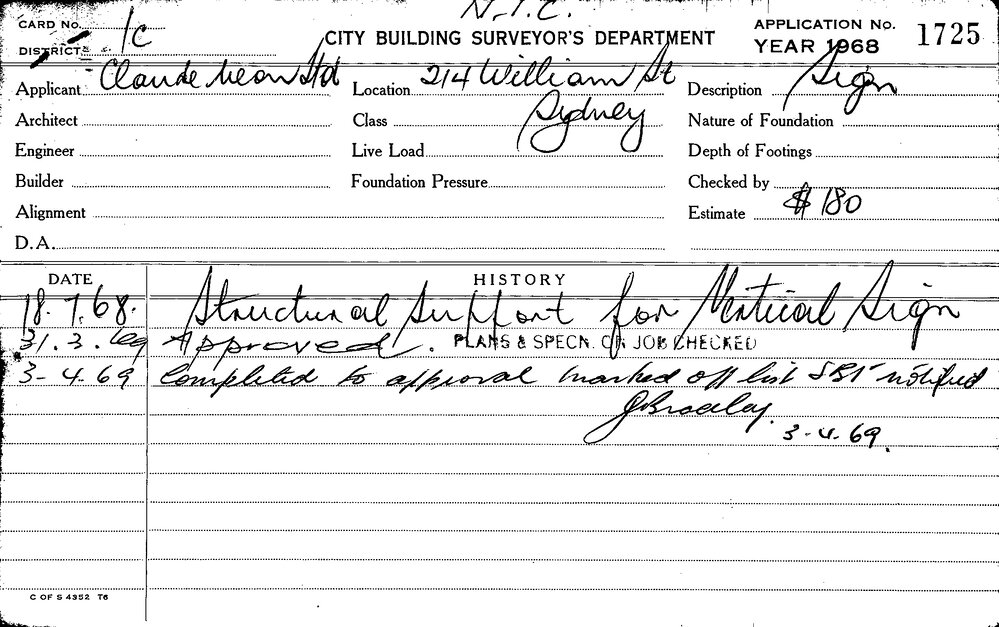 N.I.C.
CARD No. 1c
DISTRICT
CITY BUILDING SURVEYOR'S DEPARTMENT
APPLICATION No. 1725
YEAR 1968
Applicant Claude Neon Ltd Location 214 William St Description Sign
Architect Class Sydney Nature of Foundation
Engineer Live Load Depth of Footings
Builder Foundation Pressure Checked by
Alignment Estimate $180
D.A.
DATE HISTORY
18.7.68. Structural Support for Vertical Sign
31.3.69 Approved. PLANS & SPECN. ON JOB CHECKED
3-4.69 Completed to approval marked off list SBI notified
3-4.69.
C OF S 4352 T6